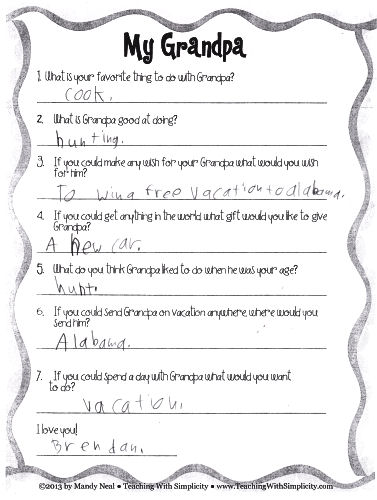 My Grandpa
1. What is your favorite thing to do with Grandpa?
cook.
2. What is Grandpa good at doing?
hunting.
3. If you could make any wish for your Grandpa what would you wish
for him?
To wina free vacation to alabama.
4. If you could get anything in the world what gift would you like to give
Grandpa?
A new car.
5. What do you think Grandpa liked to do when he was your age?
hunt.
6. If you could send Grandpa on vacation anywhere, where would you
send him?
Alabama.
7. If you could spend a day with Grandpa what would you want
to do?
vacation.
I love you!
Brendan.
©2013 by Mandy Neal • Teaching With Simplicity • www.TeachingWithSimplicity.com